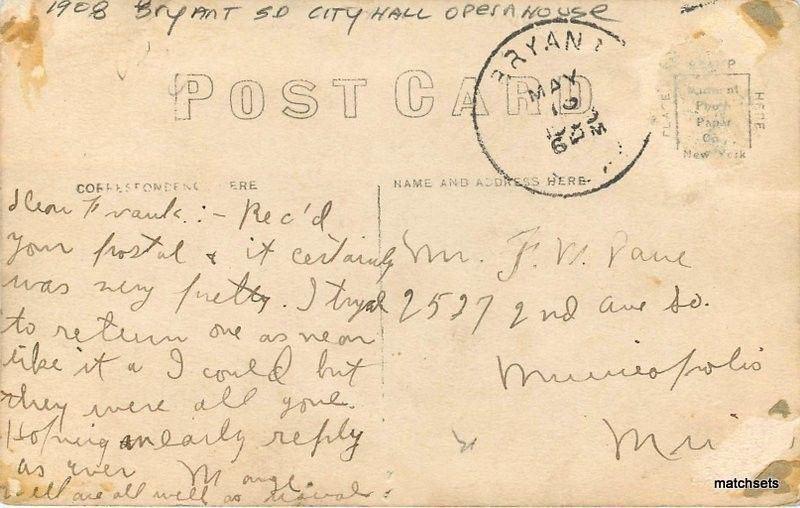 1908 Bryant SD CITY HALL OPERA HOUSE
POST CARD
BRYANT
MAY
PLACE STAMP HERE
Photo
Paper
Co.
New York
CORRESPONDENCE HERE
NAME AND ADDRESS HERE
Dear Frank:- Rec'd
your postal & it certainly
was very pretty. I tryed
to return one as near
like it a I could but
they were all gone.
Hoping an early reply
as ever
Well are all well as usual.
Mr. F. W.
2527 2nd Ave So.
Minneapolis
matchsets